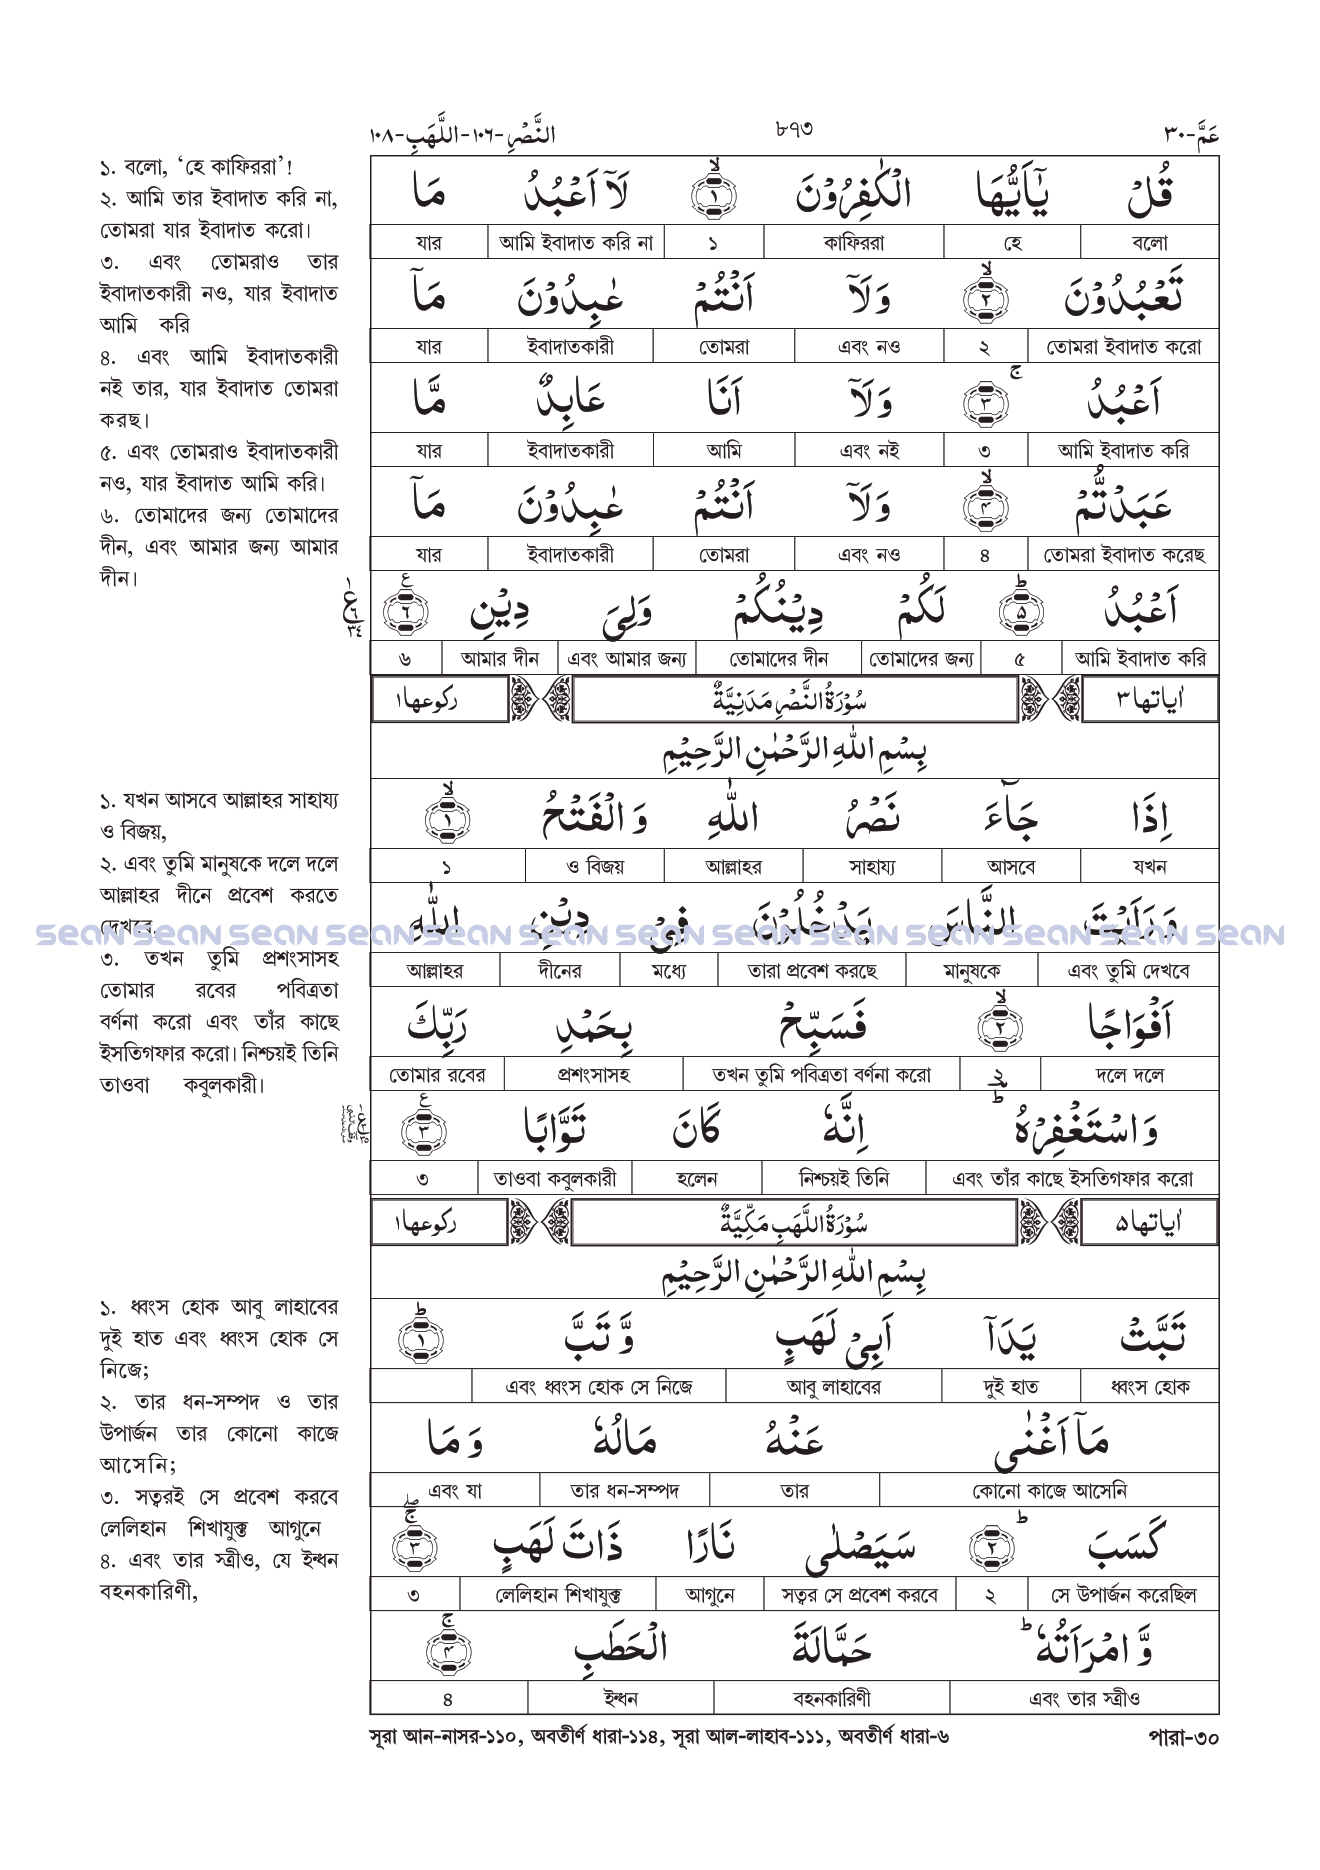 النَّصْرِ-١٠٦-اللَّهَبِ-١٠٨ ৮৭৩ عَمَّ-٣٠
১. বলো, ‘হে কাফিররা’!
২. আমি তার ইবাদাত করি না,
তোমরা যার ইবাদাত করো।
৩. এবং তোমরাও তার
ইবাদাতকারী নও, যার ইবাদাত
আমি করি
৪. এবং আমি ইবাদাতকারী
নই তার, যার ইবাদাত তোমরা
করছ।
৫. এবং তোমরাও ইবাদাতকারী
নও, যার ইবাদাত আমি করি।
৬. তোমাদের জন্য তোমাদের
দীন, এবং আমার জন্য আমার
দীন।
قُلْ يٰۤاَيُّهَا الْكٰفِرُوْنَ ۙ﴿۱﴾ لَاۤ اَعْبُدُ مَا
বলো হে কাফিররা ১ আমি ইবাদাত করি না যার
تَعْبُدُوْنَ ۙ﴿۲﴾ وَلَاۤ اَنْتُمْ عٰبِدُوْنَ مَاۤ
তোমরা ইবাদাত করো ২ এবং নও তোমরা ইবাদাতকারী যার
اَعْبُدُ ۚ﴿۳﴾ وَلَاۤ اَنَا عَابِدٌ مَّا
আমি ইবাদাত করি ৩ এবং নই আমি ইবাদাতকারী যার
عَبَدْتُّمْ ۙ﴿۴﴾ وَلَاۤ اَنْتُمْ عٰبِدُوْنَ مَاۤ
তোমরা ইবাদাত করেছ ৪ এবং নও তোমরা ইবাদাতকারী যার
اَعْبُدُ ؕ﴿۵﴾ لَكُمْ دِيْنُكُمْ وَلِىَ دِيْنِ ﴿۶﴾ ع
আমি ইবাদাত করি ৫ তোমাদের জন্য তোমাদের দীন এবং আমার জন্য আমার দীন ৬
اٰياتها ۳ سُوْرَةُ النَّصْرِ مَدَنِيَّةٌ ركوعها ۱
بِسْمِ اللّٰهِ الرَّحْمٰنِ الرَّحِيْمِ
১. যখন আসবে আল্লাহর সাহায্য
ও বিজয়,
২. এবং তুমি মানুষকে দলে দলে
আল্লাহর দীনে প্রবেশ করতে
দেখবে,
৩. তখন তুমি প্রশংসাসহ
তোমার রবের পবিত্রতা
বর্ণনা করো এবং তাঁর কাছে
ইসতিগফার করো। নিশ্চয়ই তিনি
তাওবা কবুলকারী।
اِذَا جَآءَ نَصْرُ اللّٰهِ وَالْفَتْحُ ۙ﴿۱﴾
যখন আসবে সাহায্য আল্লাহর ও বিজয় ১
وَرَاَيْتَ النَّاسَ يَدْخُلُوْنَ فِىْ دِيْنِ اللّٰهِ
sean sean sean sean sean sean sean sean sean sean sean sean sean
এবং তুমি দেখবে মানুষকে তারা প্রবেশ করছে মধ্যে দীনের আল্লাহর
اَفْوَاجًا ۙ﴿۲﴾ فَسَبِّحْ بِحَمْدِ رَبِّكَ
দলে দলে ২ তখন তুমি পবিত্রতা বর্ণনা করো প্রশংসাসহ তোমার রবের
وَاسْتَغْفِرْهُ ؕ اِنَّهٗ كَانَ تَوَّابًا ﴿۳﴾ ع
এবং তাঁর কাছে ইসতিগফার করো নিশ্চয়ই তিনি হলেন তাওবা কবুলকারী ৩
اٰياتها ۵ سُوْرَةُ اللَّهَبِ مَكِّيَّةٌ ركوعها ۱
بِسْمِ اللّٰهِ الرَّحْمٰنِ الرَّحِيْمِ
১. ধ্বংস হোক আবু লাহাবের
দুই হাত এবং ধ্বংস হোক সে
নিজে;
২. তার ধন-সম্পদ ও তার
উপার্জন তার কোনো কাজে
আসেনি;
৩. সত্বরই সে প্রবেশ করবে
লেলিহান শিখাযুক্ত আগুনে
৪. এবং তার স্ত্রীও, যে ইন্ধন
বহনকারিণী,
تَبَّتْ يَدَاۤ اَبِىْ لَهَبٍ وَّتَبَّ ؕ﴿۱﴾
ধ্বংস হোক দুই হাত আবু লাহাবের এবং ধ্বংস হোক সে নিজে
مَاۤ اَغْنٰى عَنْهُ مَالُهٗ وَمَا
কোনো কাজে আসেনি তার তার ধন-সম্পদ এবং যা
كَسَبَ ؕ﴿۲﴾ سَيَصْلٰى نَارًا ذَاتَ لَهَبٍ ۚۖ﴿۳﴾
সে উপার্জন করেছিল ২ সত্বর সে প্রবেশ করবে আগুনে লেলিহান শিখাযুক্ত ৩
وَّامْرَاَتُهٗ ؕ حَمَّالَةَ الْحَطَبِ ۚ﴿۴﴾
এবং তার স্ত্রীও বহনকারিণী ইন্ধন ৪
সূরা আন-নাসর-১১০, অবতীর্ণ ধারা-১১৪, সূরা আল-লাহাব-১১১, অবতীর্ণ ধারা-৬ পারা-৩০